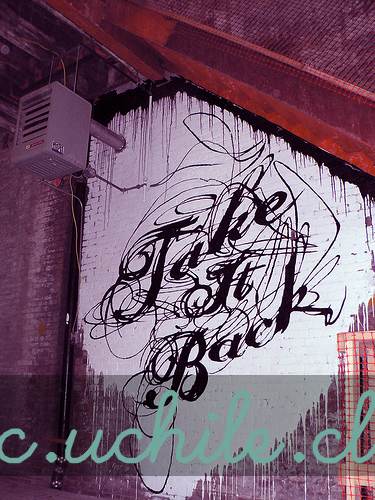 Take
It
Back
c.uchile.cl